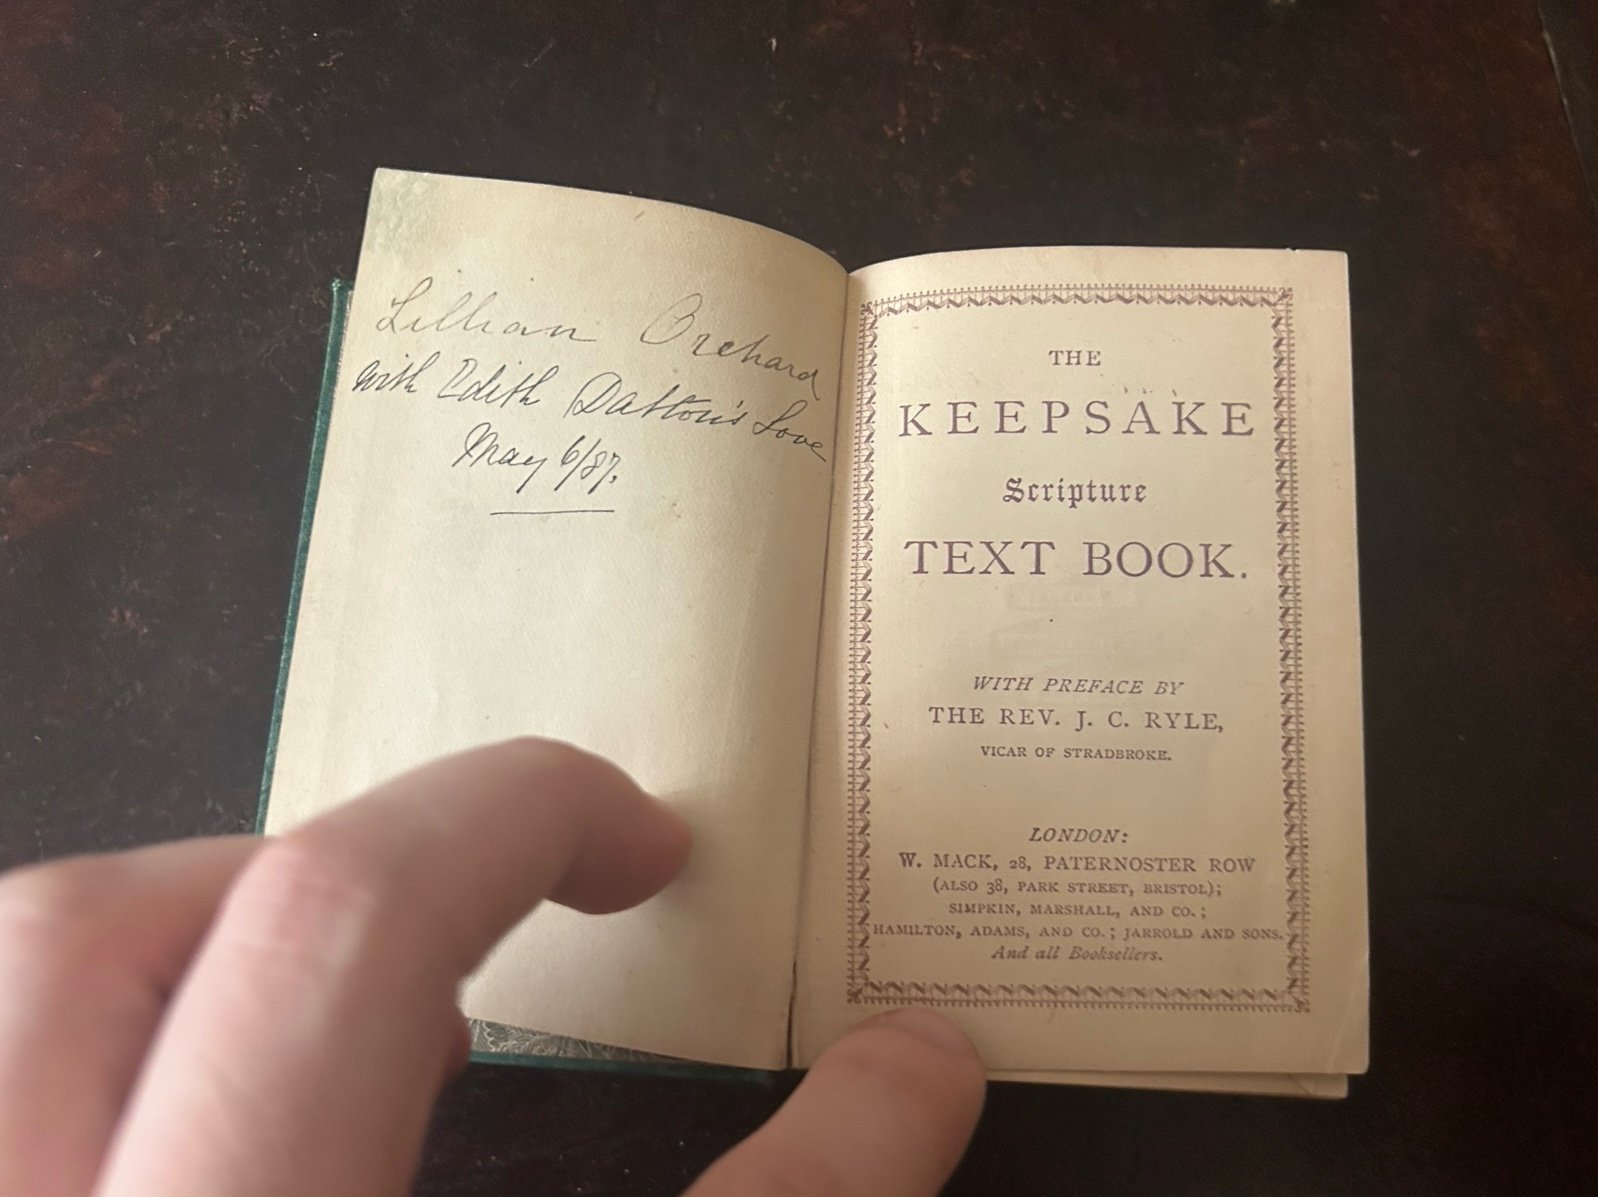 Lillian Orchard
with Edith Datton's Love
May 6/87.
THE
KEEPSAKE
Scripture
TEXT BOOK.
WITH PREFACE BY
THE REV. J. C. RYLE,
VICAR OF STRADBROKE.
LONDON:
W. MACK, 28, PATERNOSTER ROW
(ALSO 38, PARK STREET, BRISTOL);
SIMPKIN, MARSHALL, AND CO.;
HAMILTON, ADAMS, AND CO.; JARROLD AND SONS.
And all Booksellers.